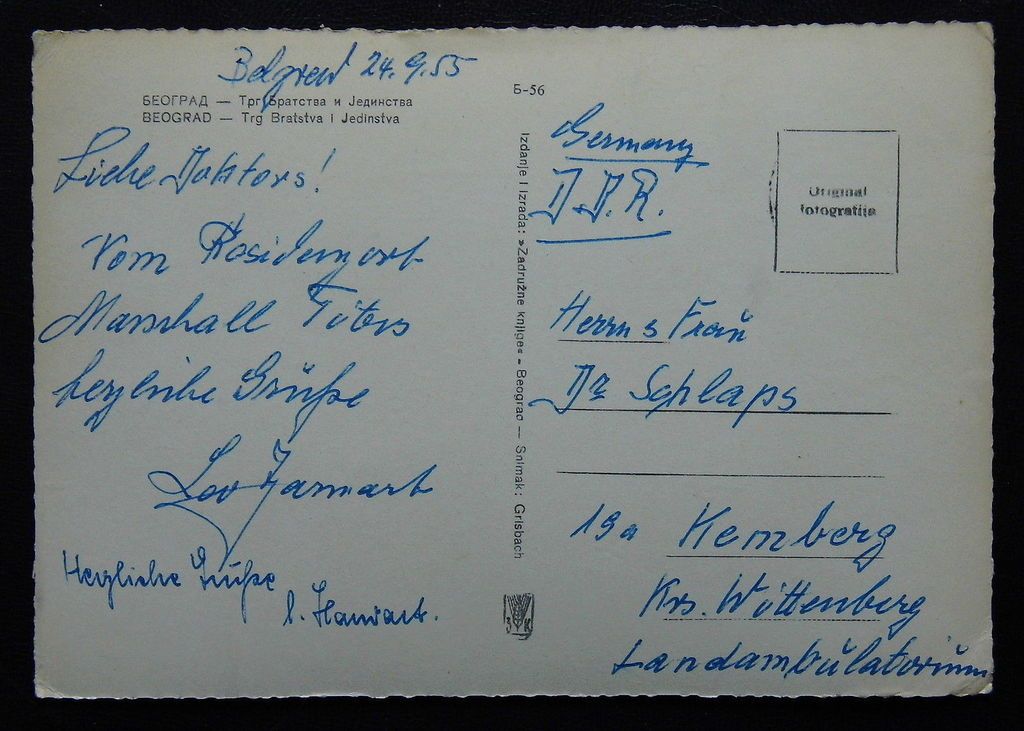 Belgrad 24.9.55
БЕОГРАД — Трг Братства и Јединства
BEOGRAD — Trg Bratstva i Jedinstva
Liebe Doktors!
Vom Residenzort
Marschall Titos
herzliche Grüße
Herzliche Grüße
Б-56
Izdanje i izrada: »Zadružne knjige« - Beograd — Snimak: Grisbach
Germany
D.D.R.
Original
fotografija
Herrn s Frau
Dr Schlaps
19a Kemberg
Krs. Wittenberg
Landambulatorium